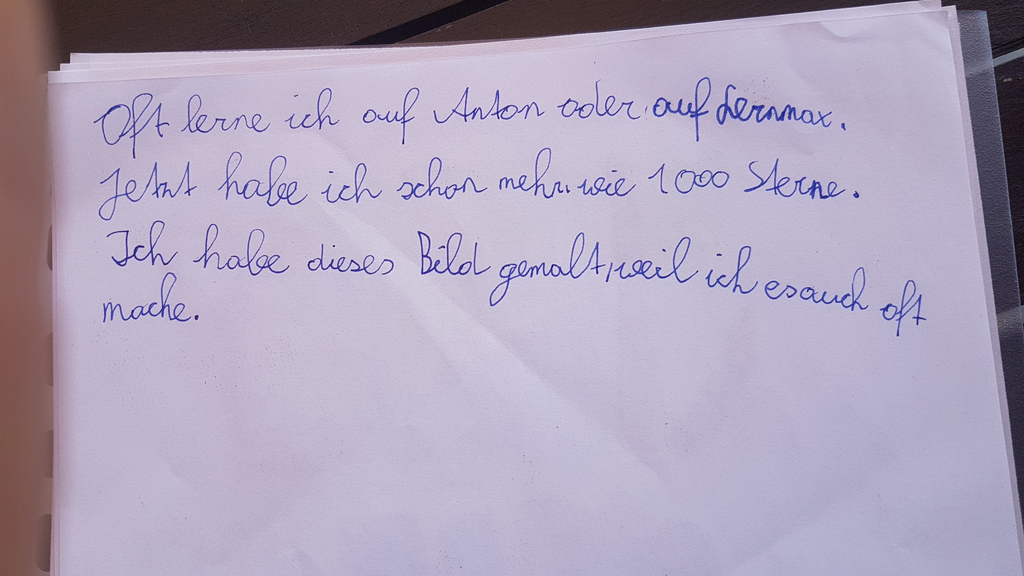 Oft lerne ich auf Anton oder auf Lernmax.
Jetzt habe ich schon mehr wie 1000 Sterne.
Ich habe dieses Bild gemalt, weil ich es auch oft
mache.